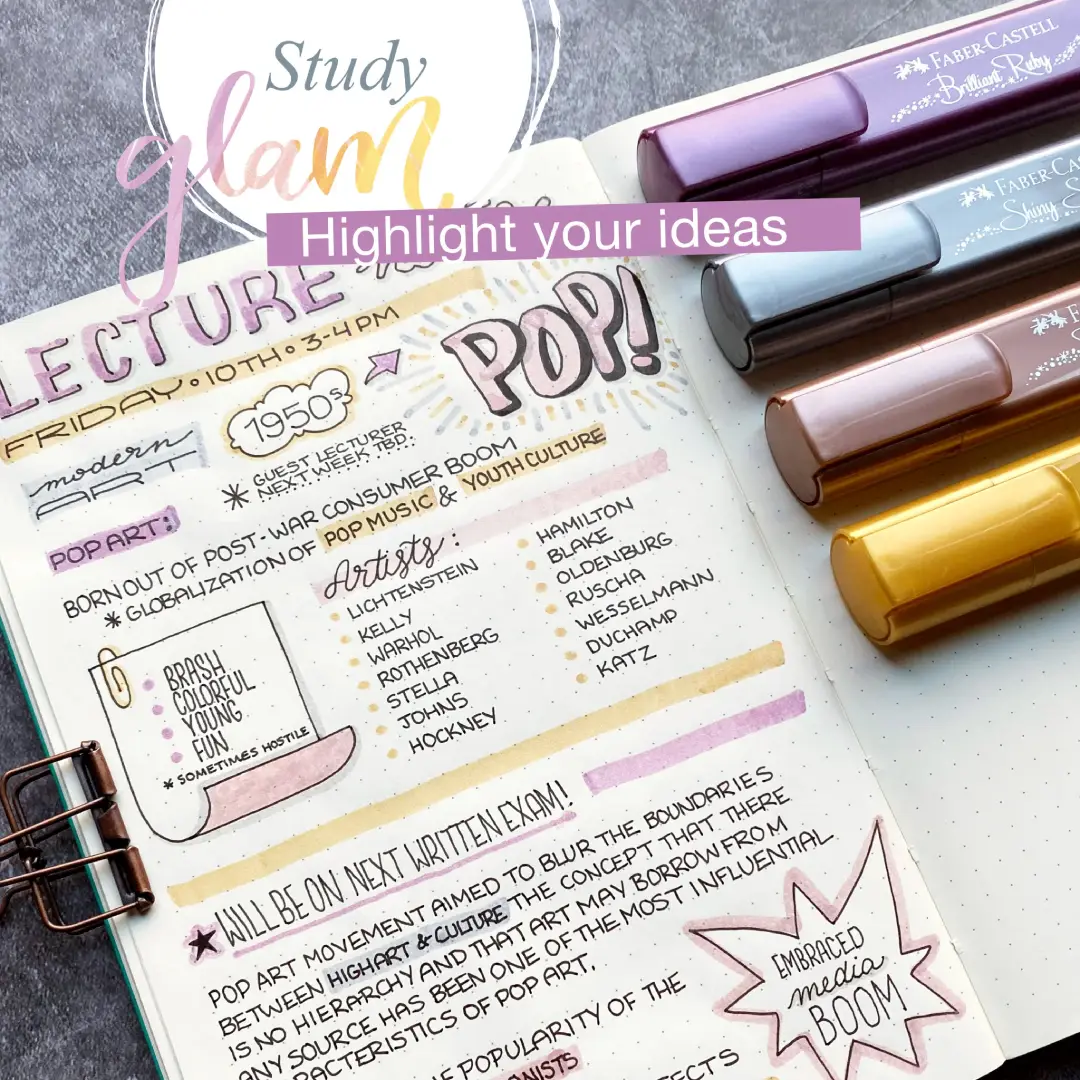 Study
glam
Highlight your ideas
FABER-CASTELL
Brilliant Ruby
FABER-CAS
Shiny S
LECTURE
FRIDAY • 10TH • 3-4 PM
POP!
1950s
modern
ART
* GUEST LECTURER
NEXT WEEK TBD:
POP ART:
BORN OUT OF POST-WAR CONSUMER BOOM
* GLOBALIZATION OF POP MUSIC & YOUTH CULTURE
Artists:
LICHTENSTEIN
KELLY
WARHOL
ROTHENBERG
STELLA
JOHNS
HOCKNEY
HAMILTON
BLAKE
OLDENBURG
RUSCHA
WESSELMANN
DUCHAMP
KATZ
BRASH
COLORFUL
YOUNG
FUN
* SOMETIMES HOSTILE
★ WILL BE ON NEXT WRITTEN EXAM!
POP ART MOVEMENT AIMED TO BLUR THE BOUNDARIES
BETWEEN HIGH ART & CULTURE THE CONCEPT THAT THERE
IS NO HIERARCHY AND THAT ART MAY BORROW FROM
ANY SOURCE HAS BEEN ONE OF THE MOST INFLUENTIAL
RACTERISTICS OF POP ART.
E POPULARITY OF THE
NISTS
ECTS
EMBRACED
media
BOOM